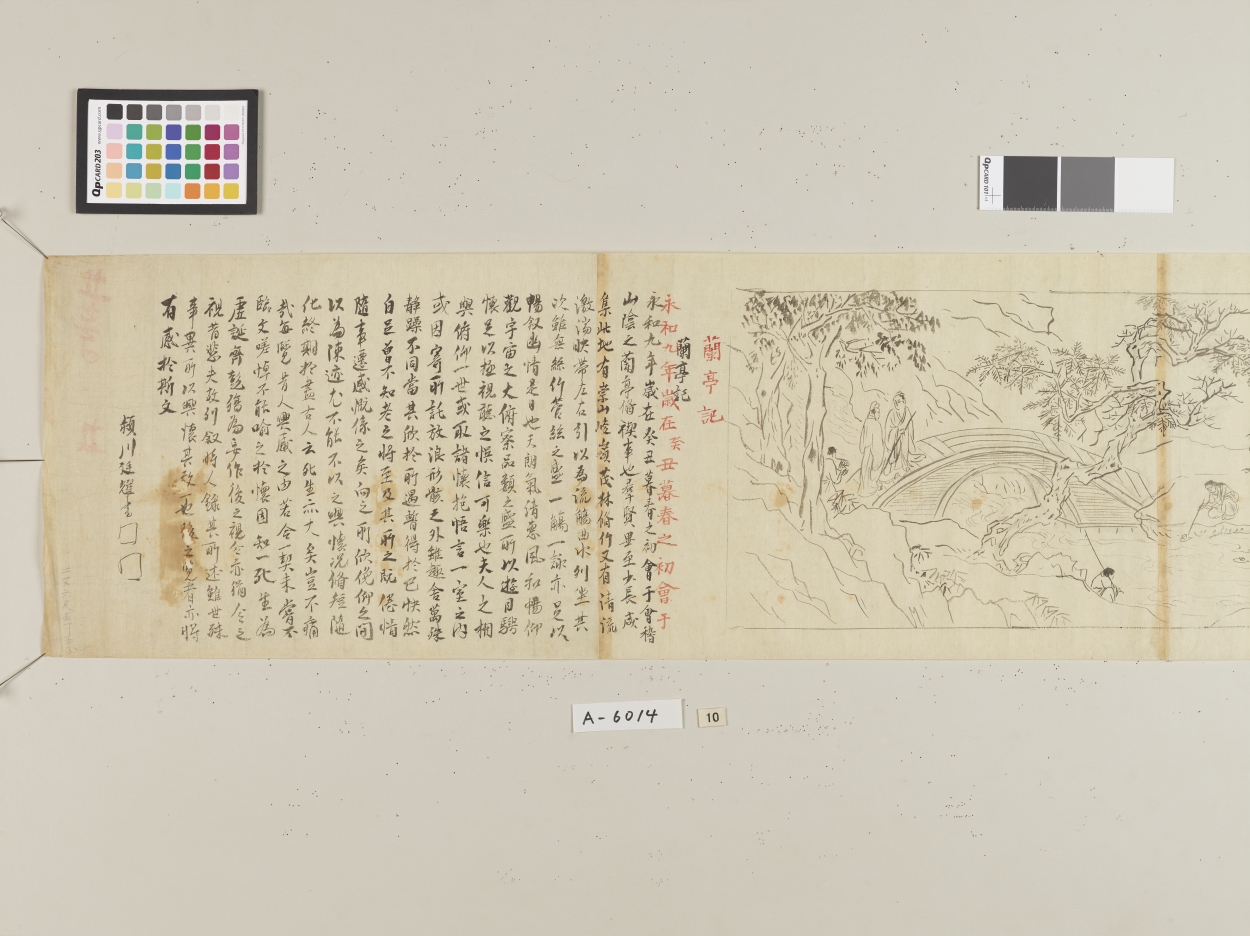 蘭亭記
蘭亭記
永和九年歲在癸丑暮春之初會于
永和九年歲在癸丑暮春之初會于會稽
山陰之蘭亭脩禊事也羣賢畢至少長咸
集此地有崇山峻嶺茂林脩竹又有清流
激湍映帶左右引以為流觴曲水列坐其
次雖無絲竹管絃之盛一觴一詠亦足以
暢叙幽情是日也天朗氣清惠風和暢仰
觀宇宙之大俯察品類之盛所以遊目騁
懷足以極視聽之娛信可樂也夫人之相
與俯仰一世或取諸懷抱悟言一室之內
或因寄所託放浪形骸之外雖趣舍萬殊
静躁不同當其欣於所遇暫得於己快然
自足曾不知老之將至及其所之既倦情
隨事遷感慨係之矣向之所欣俛仰之間
以為陳迹尤不能不以之興懷況脩短隨
化終期於盡古人云死生亦大矣豈不痛
哉每覽昔人興感之由若合一契未嘗不
臨文嗟悼不能喻之於懷固知一死生為
虛誕齊彭殤為妄作後之視今亦猶今之
視昔悲夫故列叙時人錄其所述雖世殊
事異所以興懷其致一也後之覽者亦將
有感於斯文
頴川延耀書
QpCARD 203
www.qpcard.com
QpCARD 101
A-6014
10